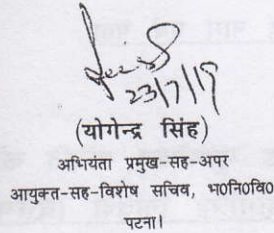 23/7/19
(योगेन्द्र सिंह)
अभियंता प्रमुख-सह-अपर
आयुक्त-सह-विशेष सचिव, भ0नि0वि0
पटना।